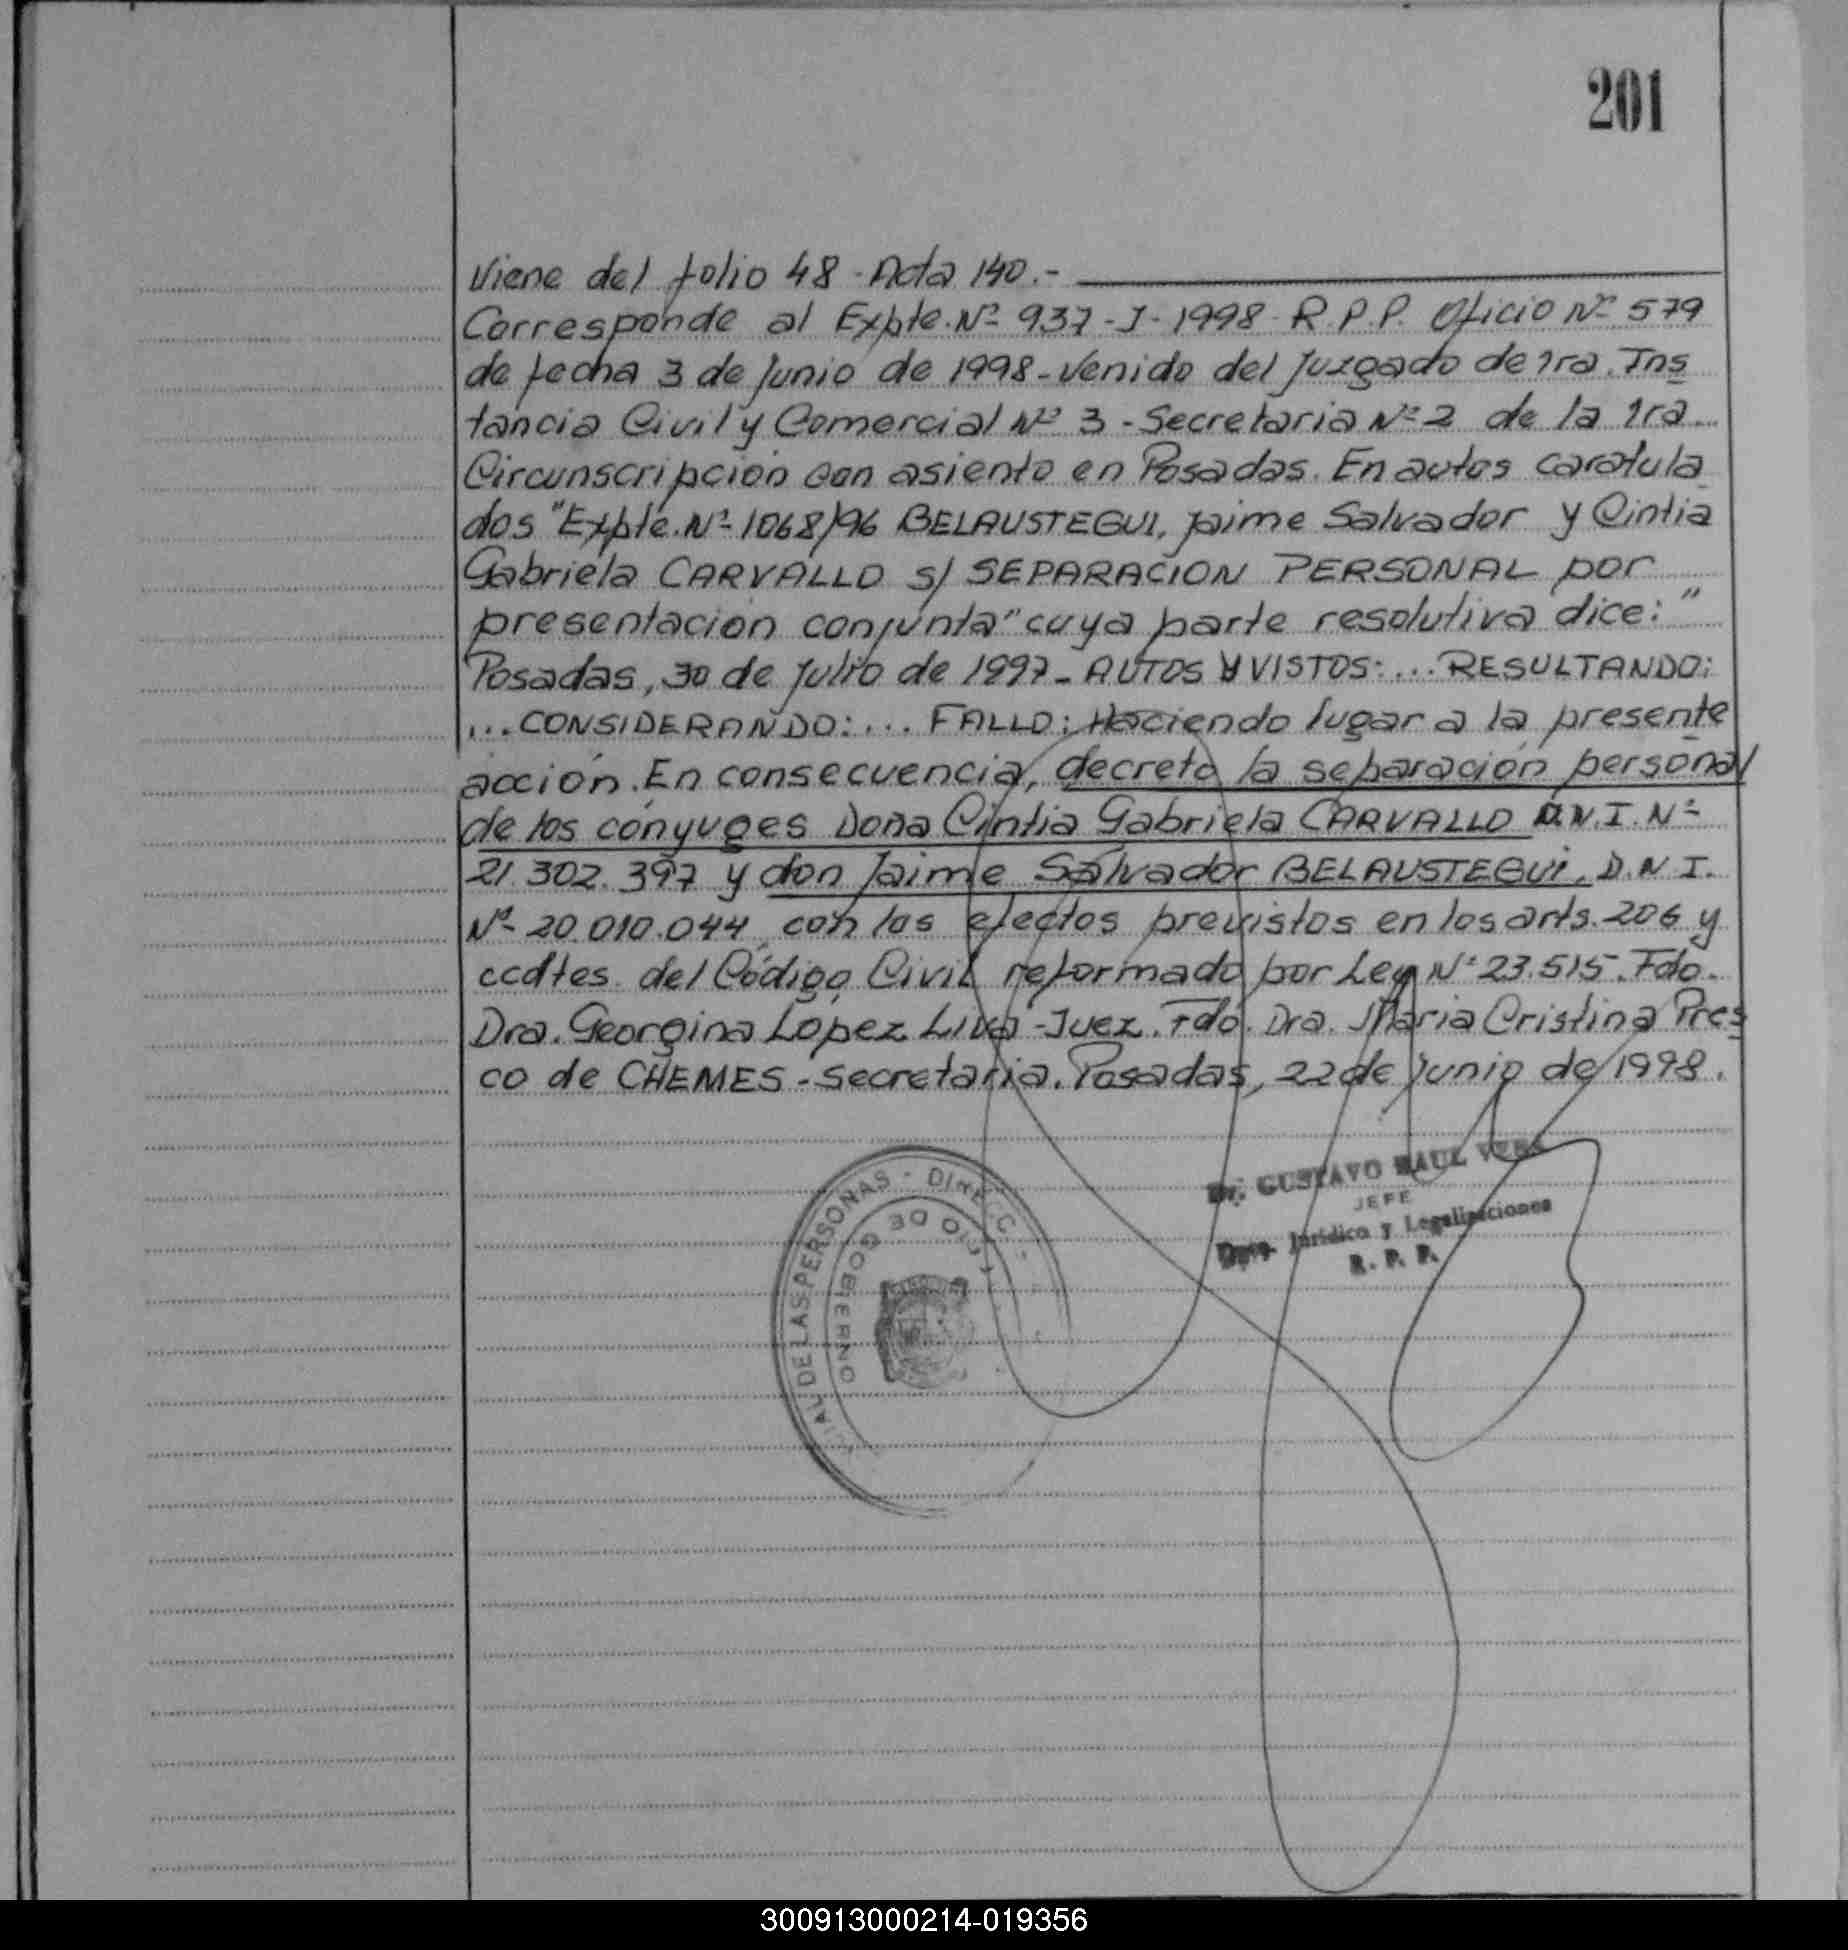 201
Viene del folio 48 - Acta 140.-
Corresponde al Expte. Nº 937-J-1998- R.P.P. Oficio Nº 579
de fecha 3 de Junio de 1998-Venido del Juzgado de 1ra. Ins
tancia Civil y Comercial Nº 3 - Secretaria Nº 2 de la 1ra
Circunscripción con asiento en Posadas. En autos caratula
dos "Expte. Nº 1068/96 BELAUSTEGUI, Jaime Salvador y Cintia
Gabriela CARVALLO s/ SEPARACION PERSONAL por
presentación conjunta" cuya parte resolutiva dice: "
Posadas, 30 de Julio de 1997- AUTOS Y VISTOS: ... RESULTANDO:
... CONSIDERANDO: ... FALLO: Haciendo lugar a la presente
acción. En consecuencia, decreto la separación personal
de los cónyuges Doña Cintia Gabriela CARVALLO D.N.I. Nº
21.302.397 y don Jaime Salvador BELAUSTEGUI, D.N.I.
Nº 20.010.044, con los efectos previstos en los arts. 206 y
ccdtes. del Código Civil reformado por Ley Nº 23.515. Fdo.
Dra. Georgina Lopez Liva - Juez. Fdo. Dra. Maria Cristina Pres
co de CHEMES - Secretaria. Posadas, 22 de Junio de 1998.
Dr. GUSTAVO RAUL VERA
JEFE
Dpto. Jurídico y Legalizaciones
R. P. P.
CIAL DE LAS PERSONAS - DIRECC.
RIO DE GOBIERNO
300913000214-019356